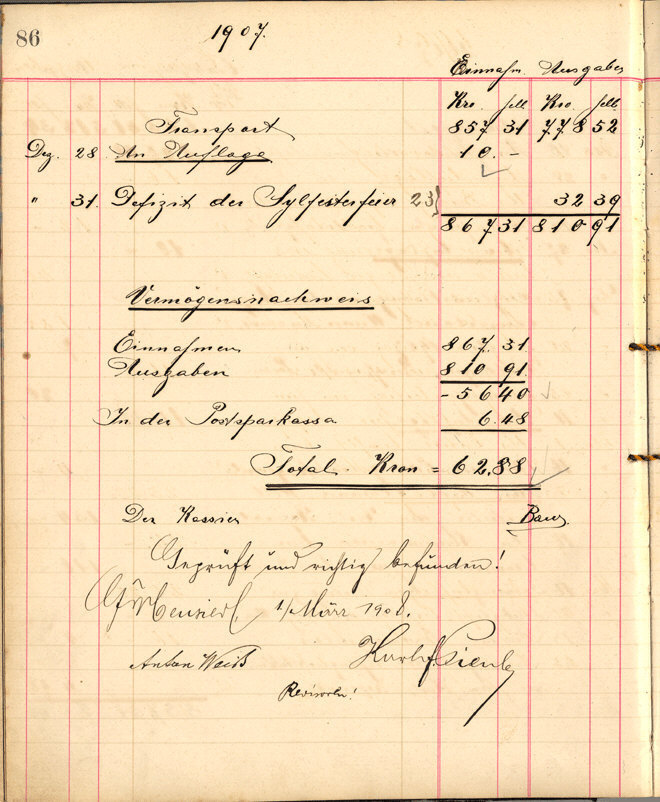 86
1907.
Einnahm. Ausgaben
Kro. hell. Kro. hell.
Transport 857 31 778 52
Dez. 28. An Auflage 10. -
" 31. Defizit der Sylfesterfeier 23) 32 39
867 31 810 91
Vermögensnachweis
Einnahmen 867. 31.
Ausgaben 810 91
- 56 40
In der Postsparkassa 6.48
Total. Kron = 62.88
Der Kassier Baur
Geprüft und richtig befunden!
1/März 1908.
Anton Weiß Karl
Revisoren!